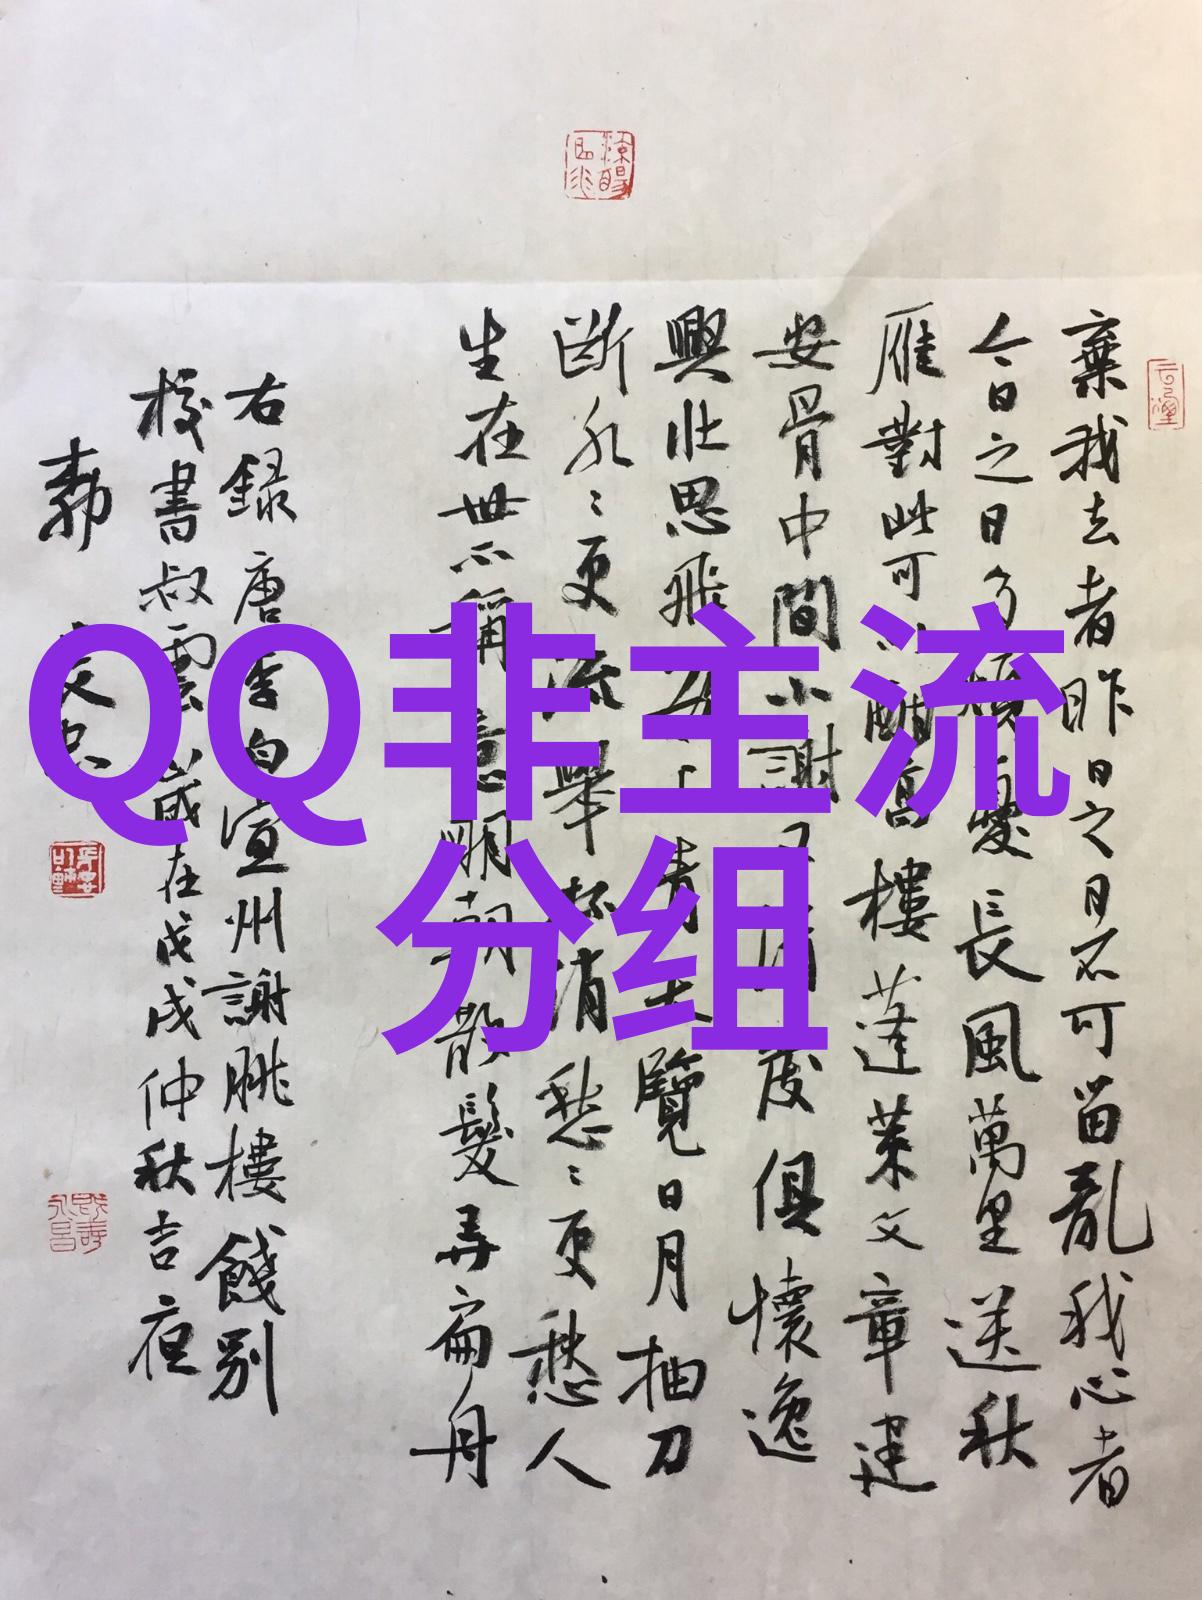 棄我去者昨日之日不可留亂我心者
今日之日多煩憂長風萬里送秋
雁對此可以酣高樓蓬萊文章建
安骨中間小謝又清發俱懷逸
興壯思飛欲上青天覽日月抽刀
斷水〻更流舉杯消愁〻更愁人
生在世不稱意明朝散髮弄扁舟
右録唐李白宣州謝朓樓餞別
校書叔雲歲在戊戌仲秋吉夜
QQ非主流
分组